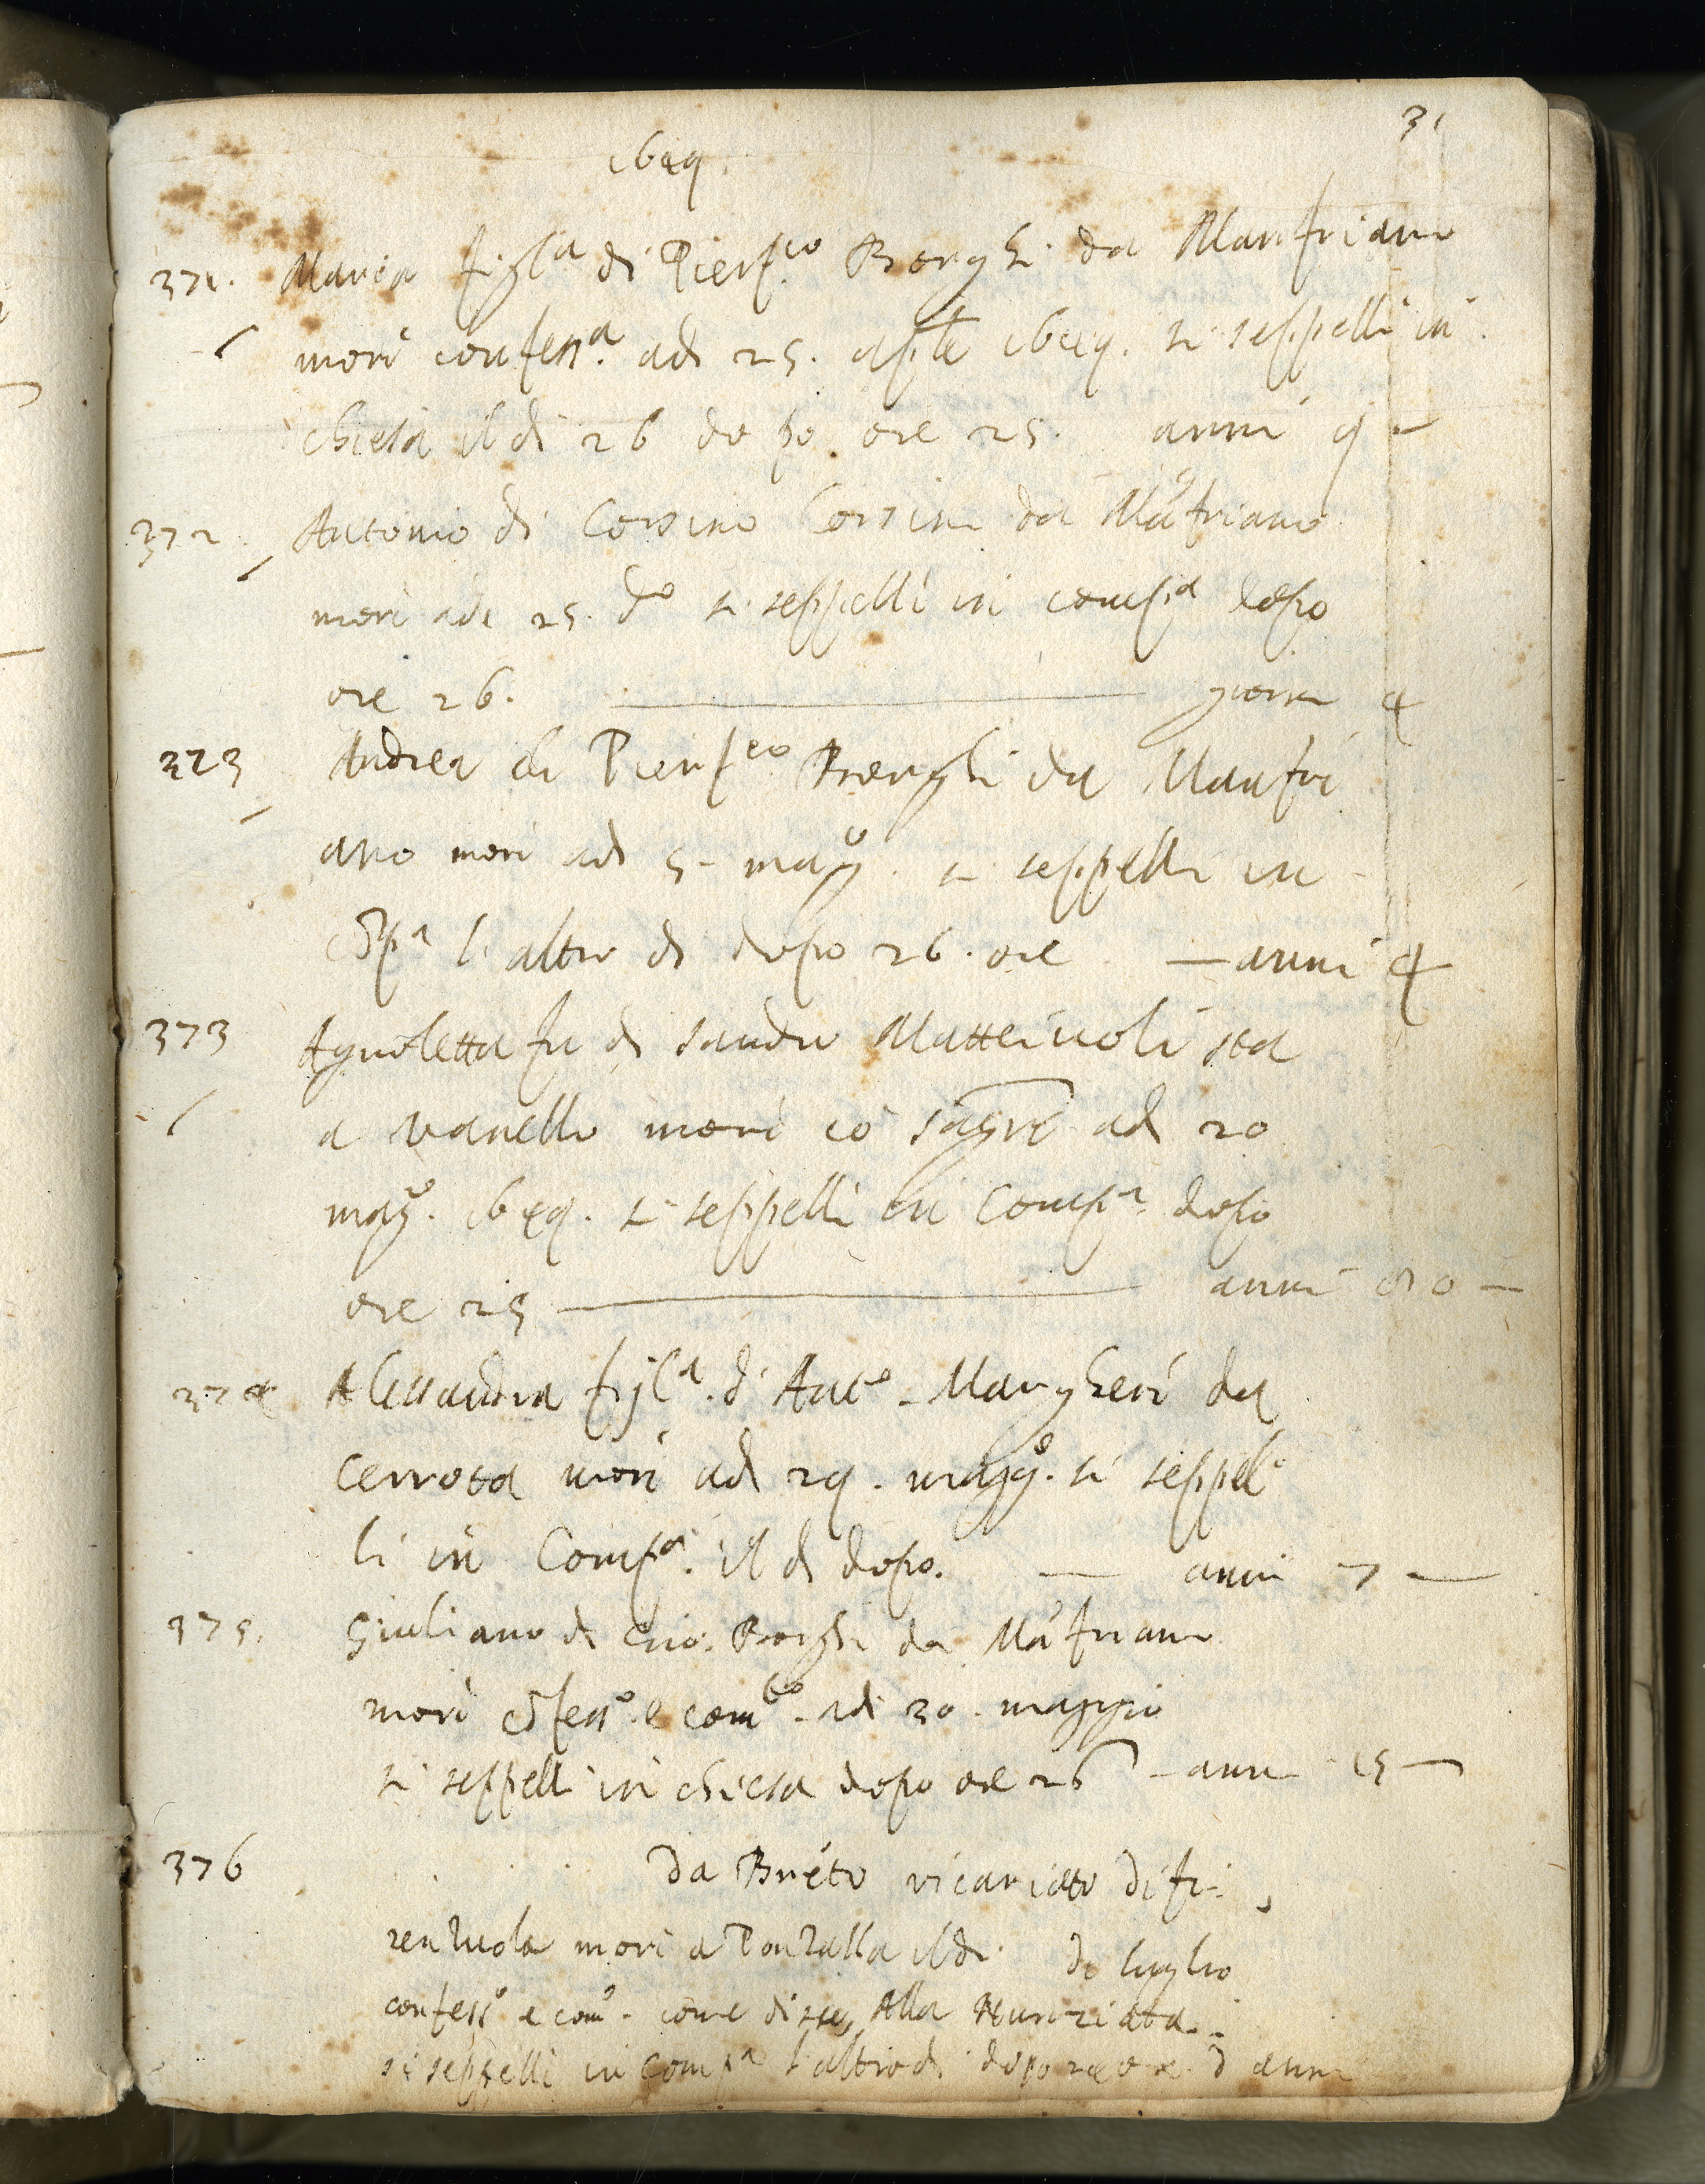 31
1649.
371. Maria figl.a di Pierf.co Borghi da Manfriano
morì confess.a adì 25. aple 1649. si seppellì in
chiesa il dì 26 dopo ore 25. anni 9 -
372 Antonio di Corsino Corsini da Mãfriano
morì adi 25. d.o si seppellì in comp.a dopo
ore 26. giorni 4
373 Andrea di Pierf.co Borghi da Manfri
ano morì adi 5 - mag.o si seppellì in
cõp.a l'altro dì dopo 26. ore — anni 4
373 Agnoletta fu di Sandro Matteivoli sta
a Vanello morì cõ sagrĩ adì 20
mag.o 1649. si seppellì in Comp.a dopo
ore 25 — anni 80 —
374 Alessandra figl.a d'Ant.o Margheri da
Cerrota morì adì 29. magg.o si seppel-
lì in Comp.a il dì dopo. — anni 7 —
375. Giuliano di Gio: Borghi da Mãfriano
morì cõfess.o e com.to adì 30. maggio
si seppellì in chiesa dopo ore 26 - anni 15 —
376 da Brueto vicariato di fi-
renzuola morì a Ponzalla il dì di luglio
confess.o e com.o - come disse, Alla Nunziata -
si seppellì in Comp.a l'altro dì dopo 24 ore d anni